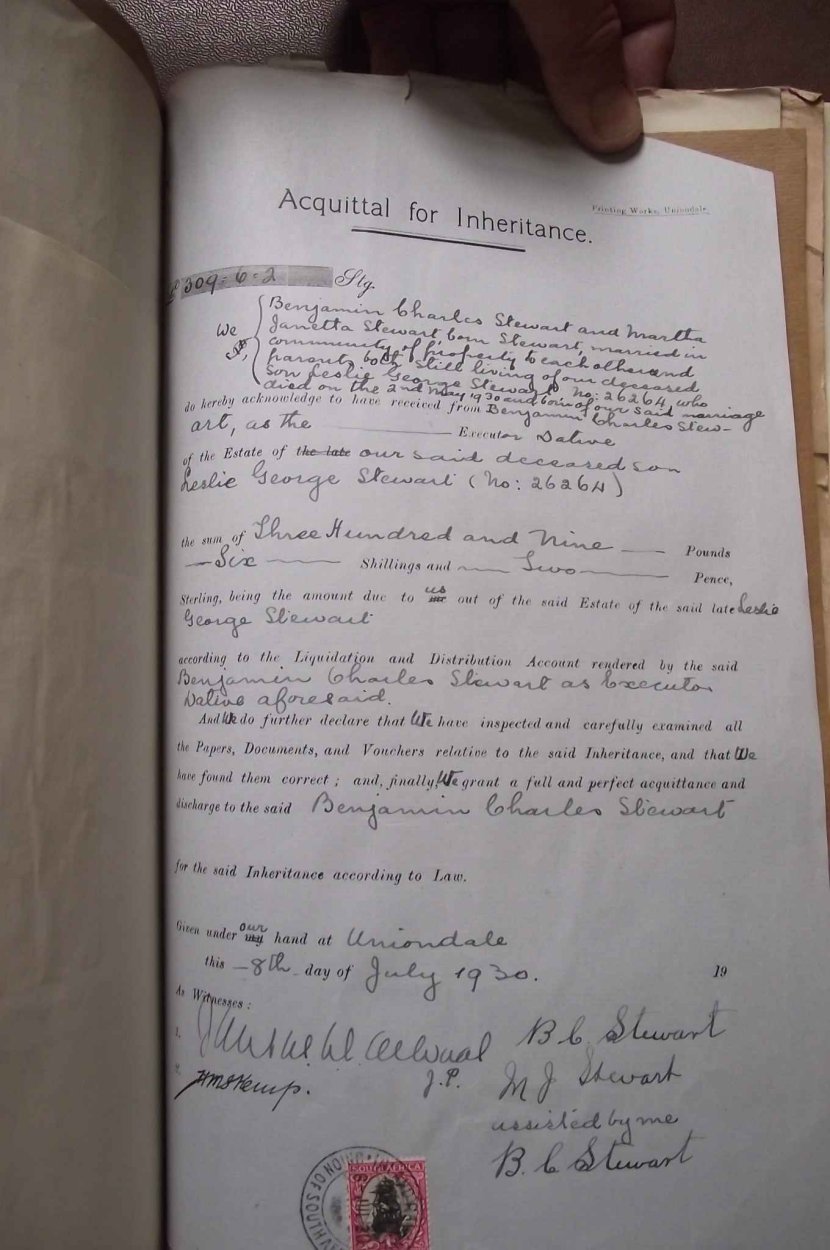 Printing Works, Uniondale.
Acquittal for Inheritance.
£309-6-2 Stg.
Benjamin Charles Stewart and Martha
We Janetta Stewart, born Stewart, married in
community of property to each other and
parents both still living of our deceased
son Leslie George Stewart No: 26264, who
died on the 2nd May 1930 and born of our said marriage
do hereby acknowledge to have received from Benjamin Charles Stew-
art, as the Executor Dative
of the Estate of the late our said deceased son
Leslie George Stewart (No: 26264)
the sum of Three Hundred and Nine Pounds
Six Shillings and Two Pence,
Sterling, being the amount due to us out of the said Estate of the said late Leslie
George Stewart
according to the Liquidation and Distribution Account rendered by the said
Benjamin Charles Stewart as Executor
Dative aforesaid.
And We do further declare that We have inspected and carefully examined all
the Papers, Documents, and Vouchers relative to the said Inheritance, and that We
have found them correct; and, finally, We grant a full and perfect acquittance and
discharge to the said Benjamin Charles Stewart
for the said Inheritance according to Law.
Given under our my hand at Uniondale
this 8th day of July 1930. 19
As Witnesses:
1. B. C. Stewart
J.P. M J Stewart
assisted by me
B. C Stewart
UNION OF SOUTH
SOUTH AFRICA